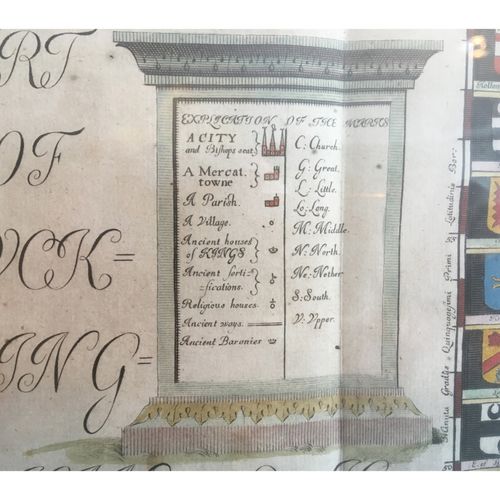 RT
OF
OCK=
ING=
EXPLICATION OF THE MARKS
A CITY
and Bishops seat
A Mercat.
towne
A Parish.
A Village.
Ancient houses
of KINGS
Ancient forti=
=fications.
Religious houses.
Ancient ways.
Ancient Baronier
C: Church.
G: Great.
L: Little.
Lo: Long.
M: Middle.
N: North.
Ne: Nether
S: South.
V: Vpper.
Latitudinis Bor:
Primi
Quinquagesimi
Gradus